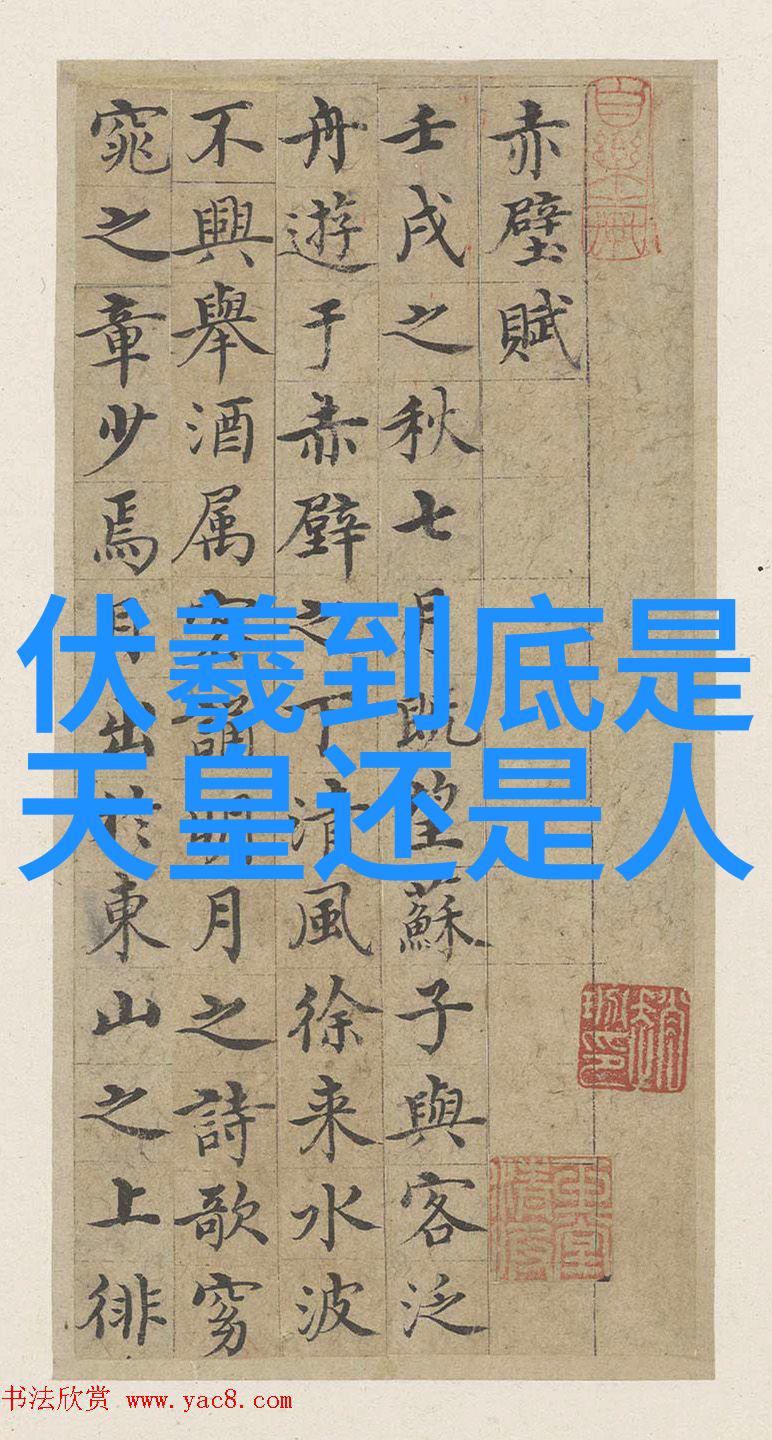 赤壁賦
壬戌之秋七月既望蘇子與客泛
舟遊于赤壁之下清風徐来水波
不興舉酒属客誦明月之詩歌窈
窕之章少焉月出於東山之上徘
伏羲到底是
天皇还是人
书法欣赏 www.yac8.com